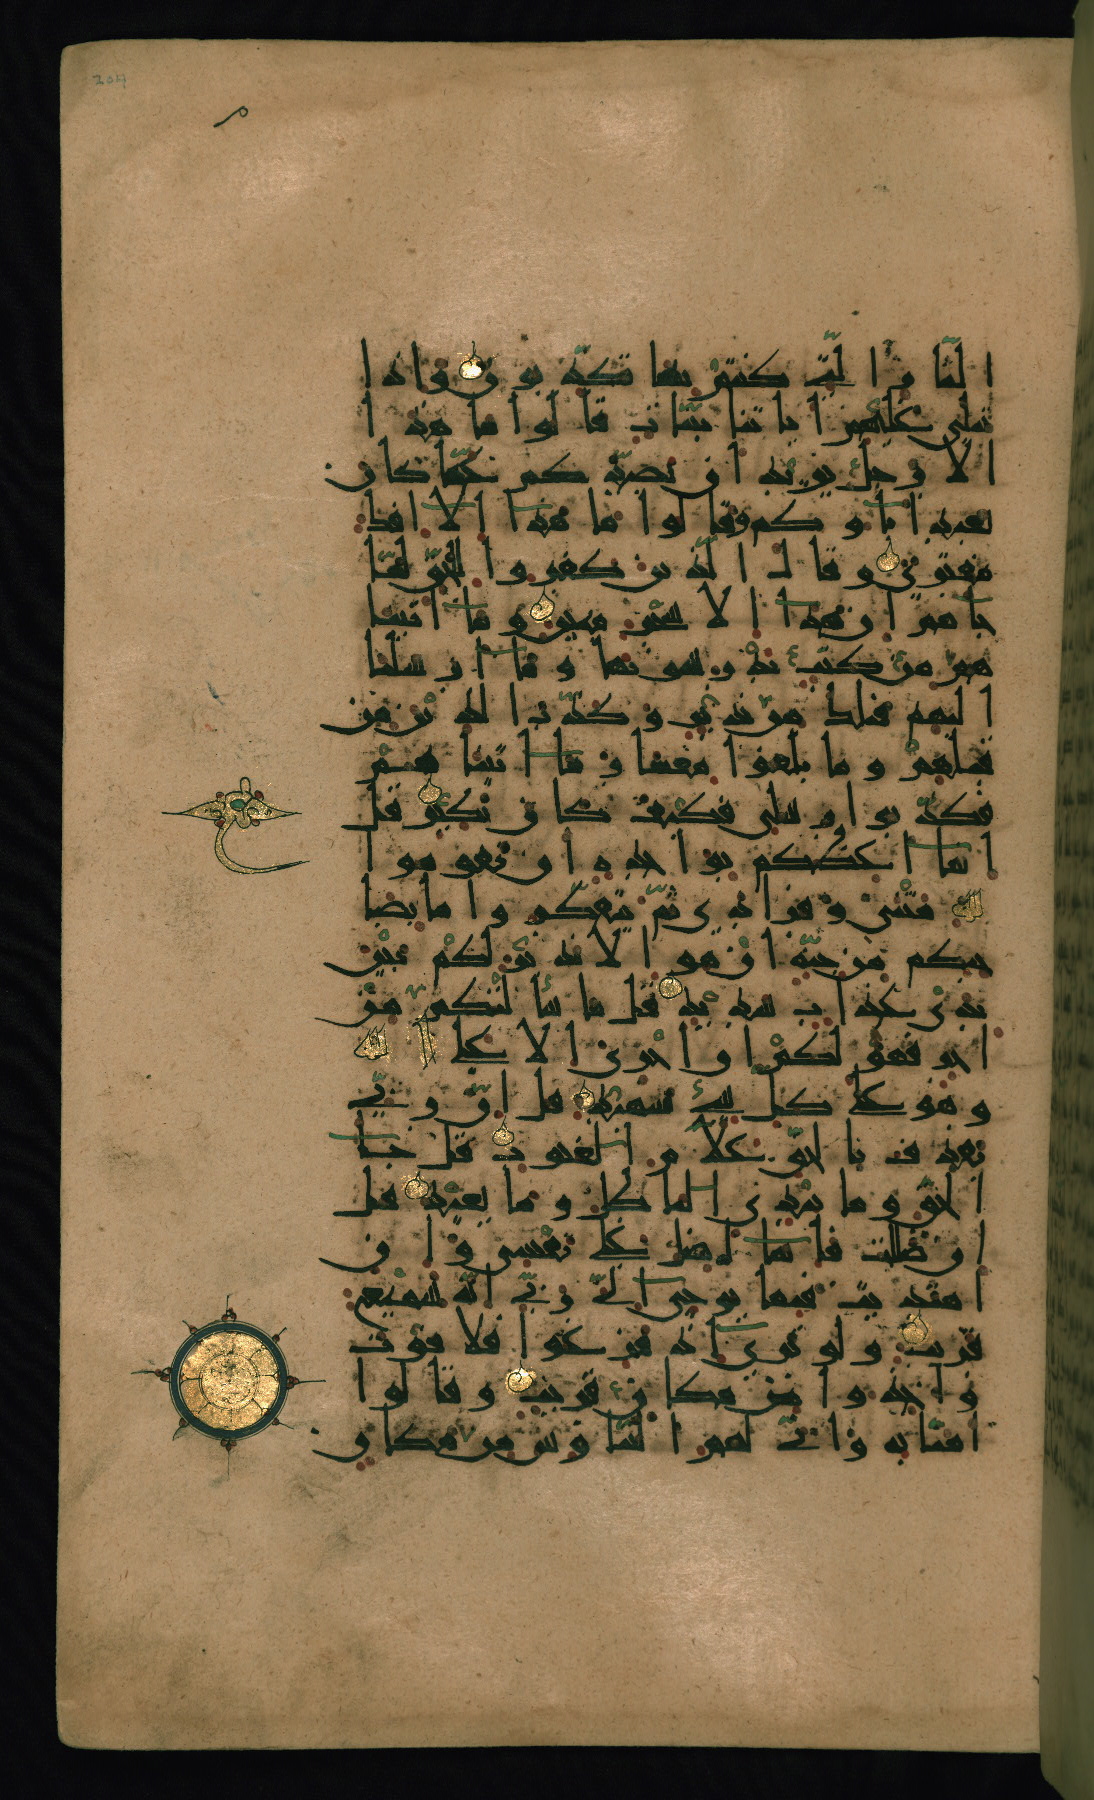 204
النار التي كنتم بها تكذبون واذا
تتلى عليهم اياتنا بينات قالوا ما هذا
الا رجل يريد ان يصدكم عما كان
يعبد اباوكم وقالوا ما هذا الا افك
مفترى وقال الذين كفروا للحق لما
جاهم ان هذا الا سحر مبين وما اتينا
هم من كتب يدرسونها وما ارسلنا
اليهم قبلك من نذير وكذب الذين من
قبلهم وما بلغوا معشار ما اتينا هم
فكذبوا رسلي فكيف كان نكير قل
انما اعظكم بواحدة ان تقوموا
لله مثنى وفرادى ثم تتفكروا ما بصا
حبكم من جنة ان هو الا نذير لكم بين
يدي عذاب شديد قل ما سالتكم من
اجر فهو لكم ان اجري الا على الله
وهو على كل شيء شهيد قل ان ربي
يقذف بالحق علام الغيوب قل جاء
الحق وما يبدئ الباطل وما يعيد قل
ان ضللت فانما اضل على نفسي وان
اهتديت فبما يوحي الي ربي انه سميع
قريب ولو ترى اذ فزعوا فلا فوت
واخذوا من مكان قريب وقالوا
امنا به وانى لهم التناوش من مكان